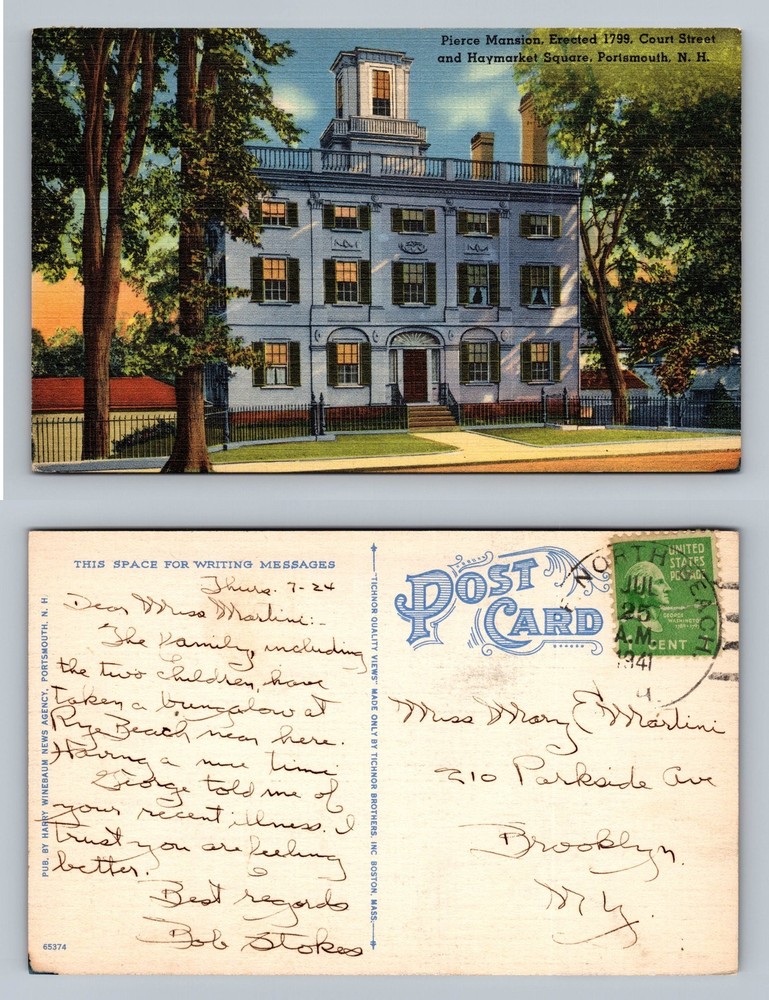 Pierce Mansion, Erected 1799, Court Street
and Haymarket Square, Portsmouth, N. H.
THIS SPACE FOR WRITING MESSAGES
Thurs. 7-24
Dear Miss Martini:-
The family, including
the two children, have
taken a bungalow at
Rye Beach near here.
Having a nice time
George told me of
your recent illness. I
trust you are feeling
better.
Best regards
Bob Stokes
65374
PUB. BY HARRY WINEBAUM NEWS AGENCY, PORTSMOUTH, N. H.
"TICHNOR QUALITY VIEWS" MADE ONLY BY TICHNOR BROTHERS, INC BOSTON, MASS.
POST
CARD
NORTH
BEACH
JUL
25
A.M.
1941
UNITED
STATES
POSTAGE
GEORGE
WASHINGTON
1 CENT
Miss Mary E Martini
210 Parkside Ave
Brooklyn.
NY.